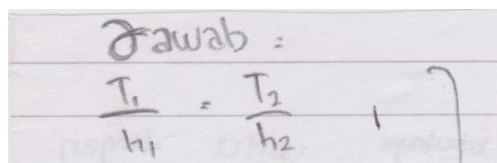 Jawab :
T₁/h₁ = T₂/h₂ ,